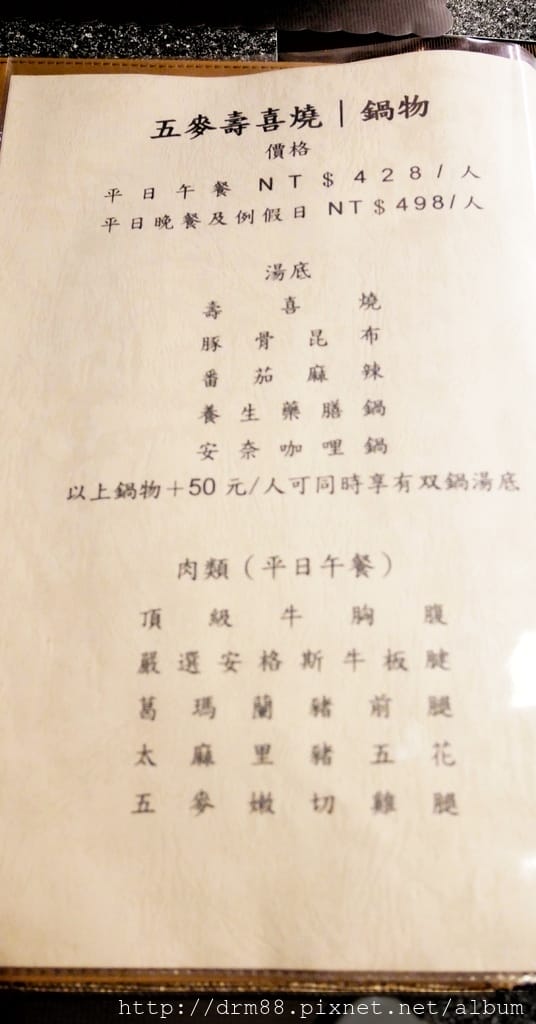 五麥壽喜燒|鍋物
價格
平日午餐 NT$428/人
平日晚餐及例假日 NT$498/人
湯底
壽喜燒
豚骨昆布
番茄麻辣
養生藥膳鍋
安奈咖哩鍋
以上鍋物+50元/人可同時享有双鍋湯底
肉類(平日午餐)
頂級牛胸腹
嚴選安格斯牛板腱
葛瑪蘭豬前腿
太麻里豬五花
五麥嫩切雞腿
http://drm88.pixnet.net/album